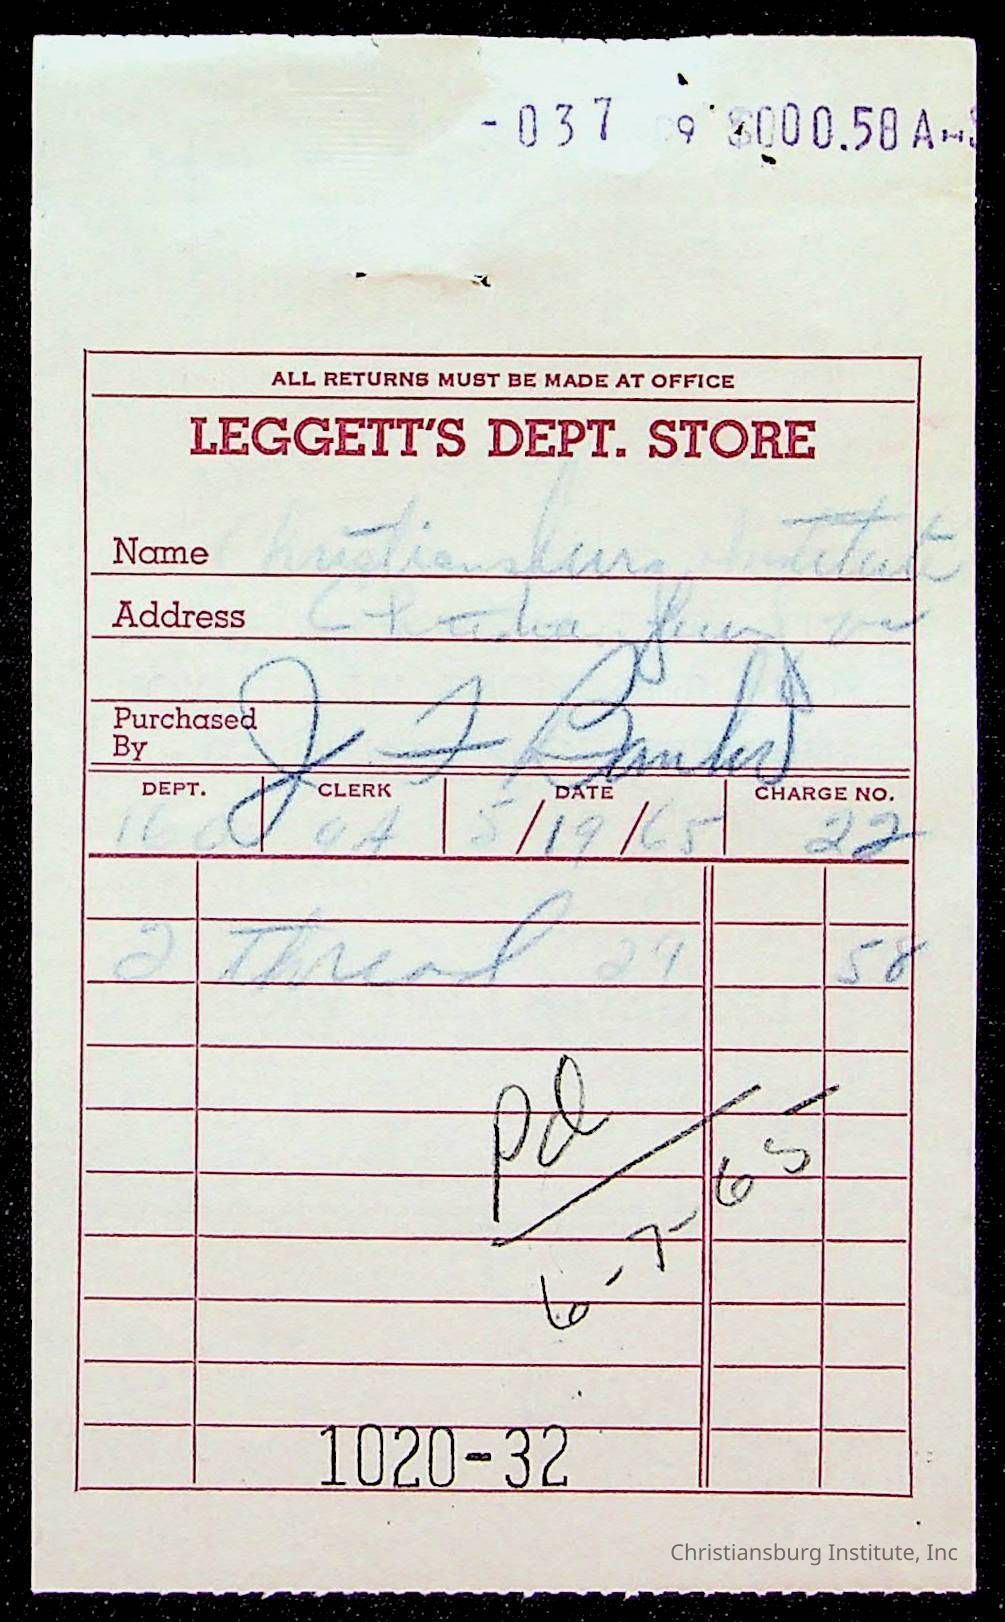 -037 9 $000.58 A
ALL RETURNS MUST BE MADE AT OFFICE
LEGGETT'S DEPT. STORE
Name Christiansburg Institute
Address
Purchased By J F Banks
DEPT. CLERK DATE CHARGE NO.
5/19/65 22
2 Thread 29 58
pd
6-7-65
1020-32
Christiansburg Institute, Inc